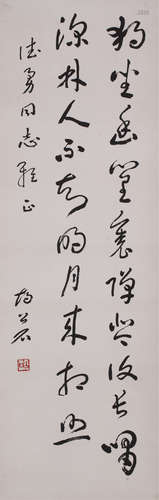 独坐幽篁裏弹琴复长啸
深林人不知明月来相照
德勇同志雅正
胡公石